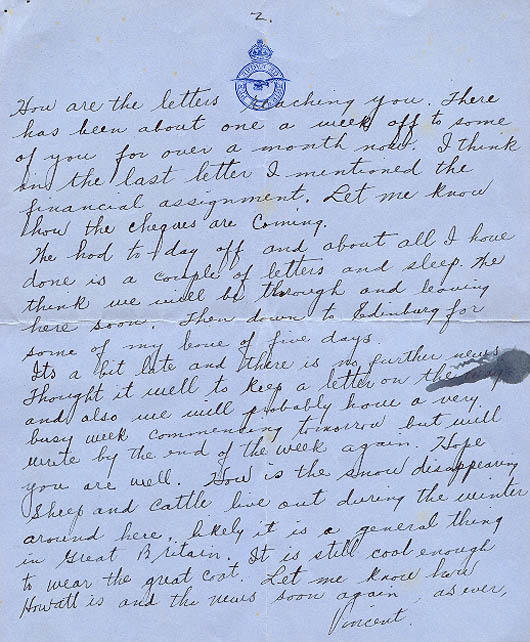 2.
How are the letters reaching you. There
has been about one a week off to some
of you for over a month now. I think
in the last letter I mentioned the
financial assignment. Let me know
how the cheques are coming.
We had to day off and about all I have
done is a couple of letters and sleep. We
think we will be through and leaving
here soon. Then down to Edinburg for
some of my leave of five days.
Its a bit late and there is no further news
Thought it well to keep a letter on the
and also we will probably have a very
busy week commencing tomorrow but will
write by the end of the week again. Hope
you are well. How is the snow disappearing
Sheep and cattle live out during the winter
around here, likely it is a general thing
in Great Britain. It is still cool enough
to wear the great coat. Let me know how
Howatt is and the news soon again, as ever,
Vincent.